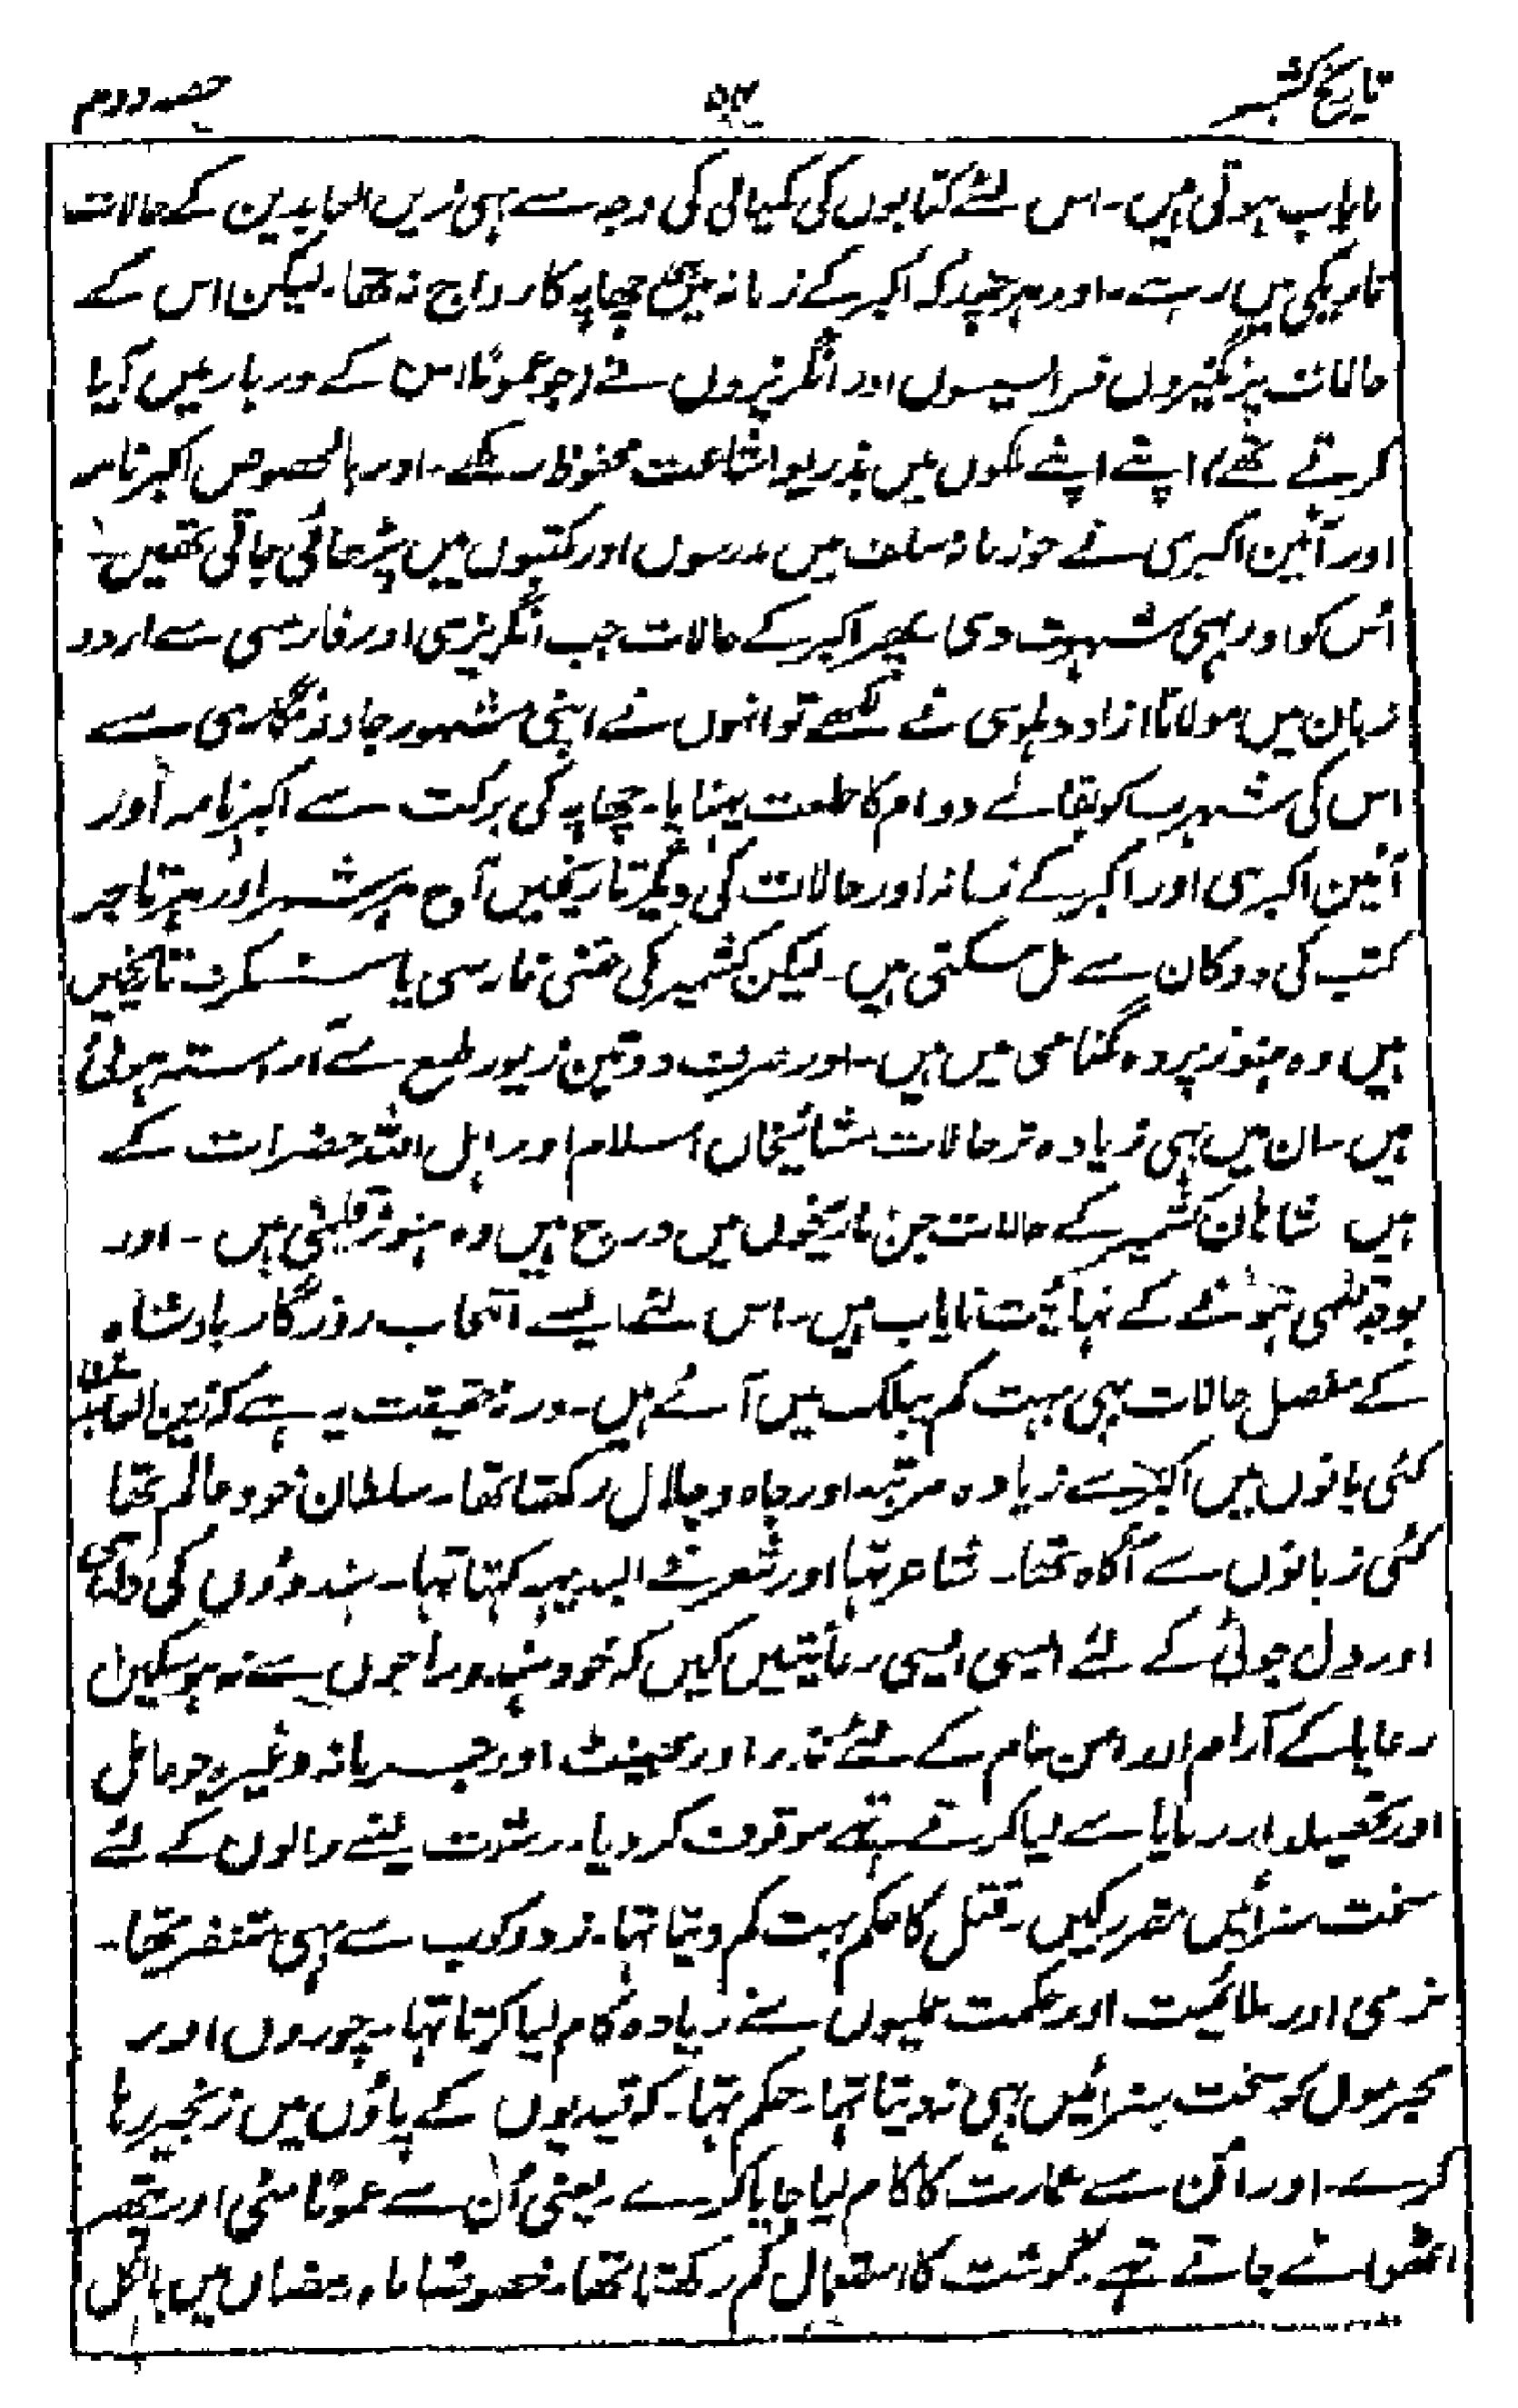 تاریخ کشمیر
حصہ دوم
نایاب ہوتی ہیں۔ اس لئے کتابوں کی کمیابی کی وجہ سے بہی زین العابدین کے حالات
تاریکی میں رہے۔ اور ہرچند کہ اکبر کے زمانہ میں چھاپہ کا رواج نہ تھا۔ لیکن اس کے
حالات پرتگیزوں فرانسیسوں اور انگریزوں نے (جو عموماً اس کے دربار میں آیا
کرتے تھے) اپنے اپنے ملکوں میں بذریعہ اشاعت محفوظ رکھے۔ اور بالخصوص اکبر نامہ
اور آئین اکبری نے جو زمانہ سلف میں مدرسوں اور مکتبوں میں پڑھائی جاتی تھیں۔
اُس کو اور بہی شہرت دی پھر اکبر کے حالات جب انگریزی اور فارسی سے اردو
زبان میں مولانا آزاد دہلوی نے لکھے تو انہوں نے اپنی مشہور جادو نگاری سے
اس کی شہرت کو بقائے دوام کا خلعت پہنایا۔ چھاپہ کی برکت سے اکبر نامہ اور
آئین اکبری اور اکبر کے زمانہ اور حالات کی دیگر تاریخیں آج ہر شہر اور ہر تاجر
کتب کی دوکان سے مل سکتی ہیں۔ لیکن کشمیر کی جتنی فارسی یا سنسکرت تاریخیں
ہیں وہ ہنوز پردہ گمنامی میں ہیں۔ اور صرف دو تین زیور طبع سے آراستہ ہوئی
ہیں۔ ان میں بہی زیادہ تر حالات مشائیخان اسلام اور اہل اللہ حضرات کے
ہیں شاہان کشمیر کے حالات جن تاریخوں میں درج ہیں وہ ہنوز قلمی ہیں۔ اور
بوجہ قلمی ہونے کے نہائیت نایاب ہیں۔ اس لئے ایسے انتخاب روزگار بادشاہ
کے مفصل حالات بہی بہت کم پبلک میں آئے ہیں۔ ورنہ حقیقت یہ ہے کہ زین العابدین
کئی باتوں میں اکبر سے زیادہ مرتبہ اور جاہ و جلال رکھتا تھا۔ سلطان خود عالم تھا
کئی زبانوں سے آگاہ تھا۔ شاعر تہا اور شعر فے البدیہہ کہتا تہا۔ ہندوؤں کی دلداری
اور دل جوئی کے لئے ایسی ایسی رعائیتیں کیں کہ خود ہندو راجوں سے نہ ہوسکیں
رعایا کے آرام اور امن عام کے لئے نذر اور بھینٹ اور جرمانہ وغیرہ جو عامل
اور تحصیلدار رعایا سے لیا کرتے تہے موقوف کر دیا۔ رشوت لینے والوں کے لئے
سخت سزائیں مقرر کیں۔ قتل کا حکم بہت کم دیتا تہا۔ زدوکوب سے بہی متنفر تھا۔
نرمی اور ملائمیت اور حکمت عملیوں سے زیادہ کام لیا کرتا تہا۔ چوروں اور
مجرموں کو سخت سزائیں بہی نہ دیتا تہا۔ حکم تہا۔ کہ قیدیوں کے پاؤں میں زنجیر رہا
کرے۔ اور اُن سے عمارت کا کام لیا جایا کرے۔ یعنی اُن سے عموماً مٹی اور پتھر
اٹھوائے جاتے تہے۔ گوشت کا استعمال کم رکھتا تھا۔ خصوصاً ماہ رمضان میں بالکل